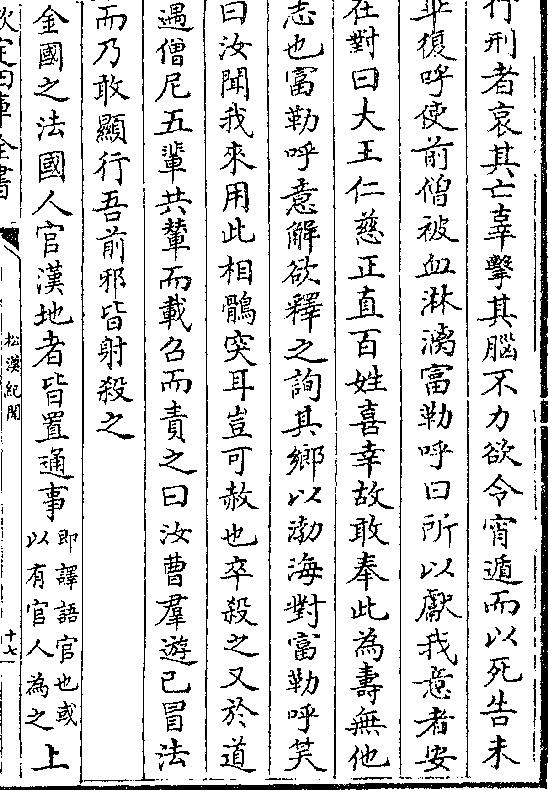 行刑者哀其亡辜擊其腦不力欲令宵遁而以死告未
卒復呼使前僧被血淋漓富勒呼曰所以獻我意者安
在對曰大王仁慈正直百姓喜幸故敢奉此為壽無他
志也富勒呼意解欲釋之詢其鄉以渤海對富勒呼笑
曰汝聞我來用此相鶻突耳豈可赦也卒殺之又於道
遇僧尼五輩共輦而載召而責之曰汝曹羣遊已冒法
而乃敢顯行吾前邪皆射殺之
金國之法國人官漢地者皆置通事即譯語官也或以有官人為之上
欽定四庫全書
松漠紀聞
十七